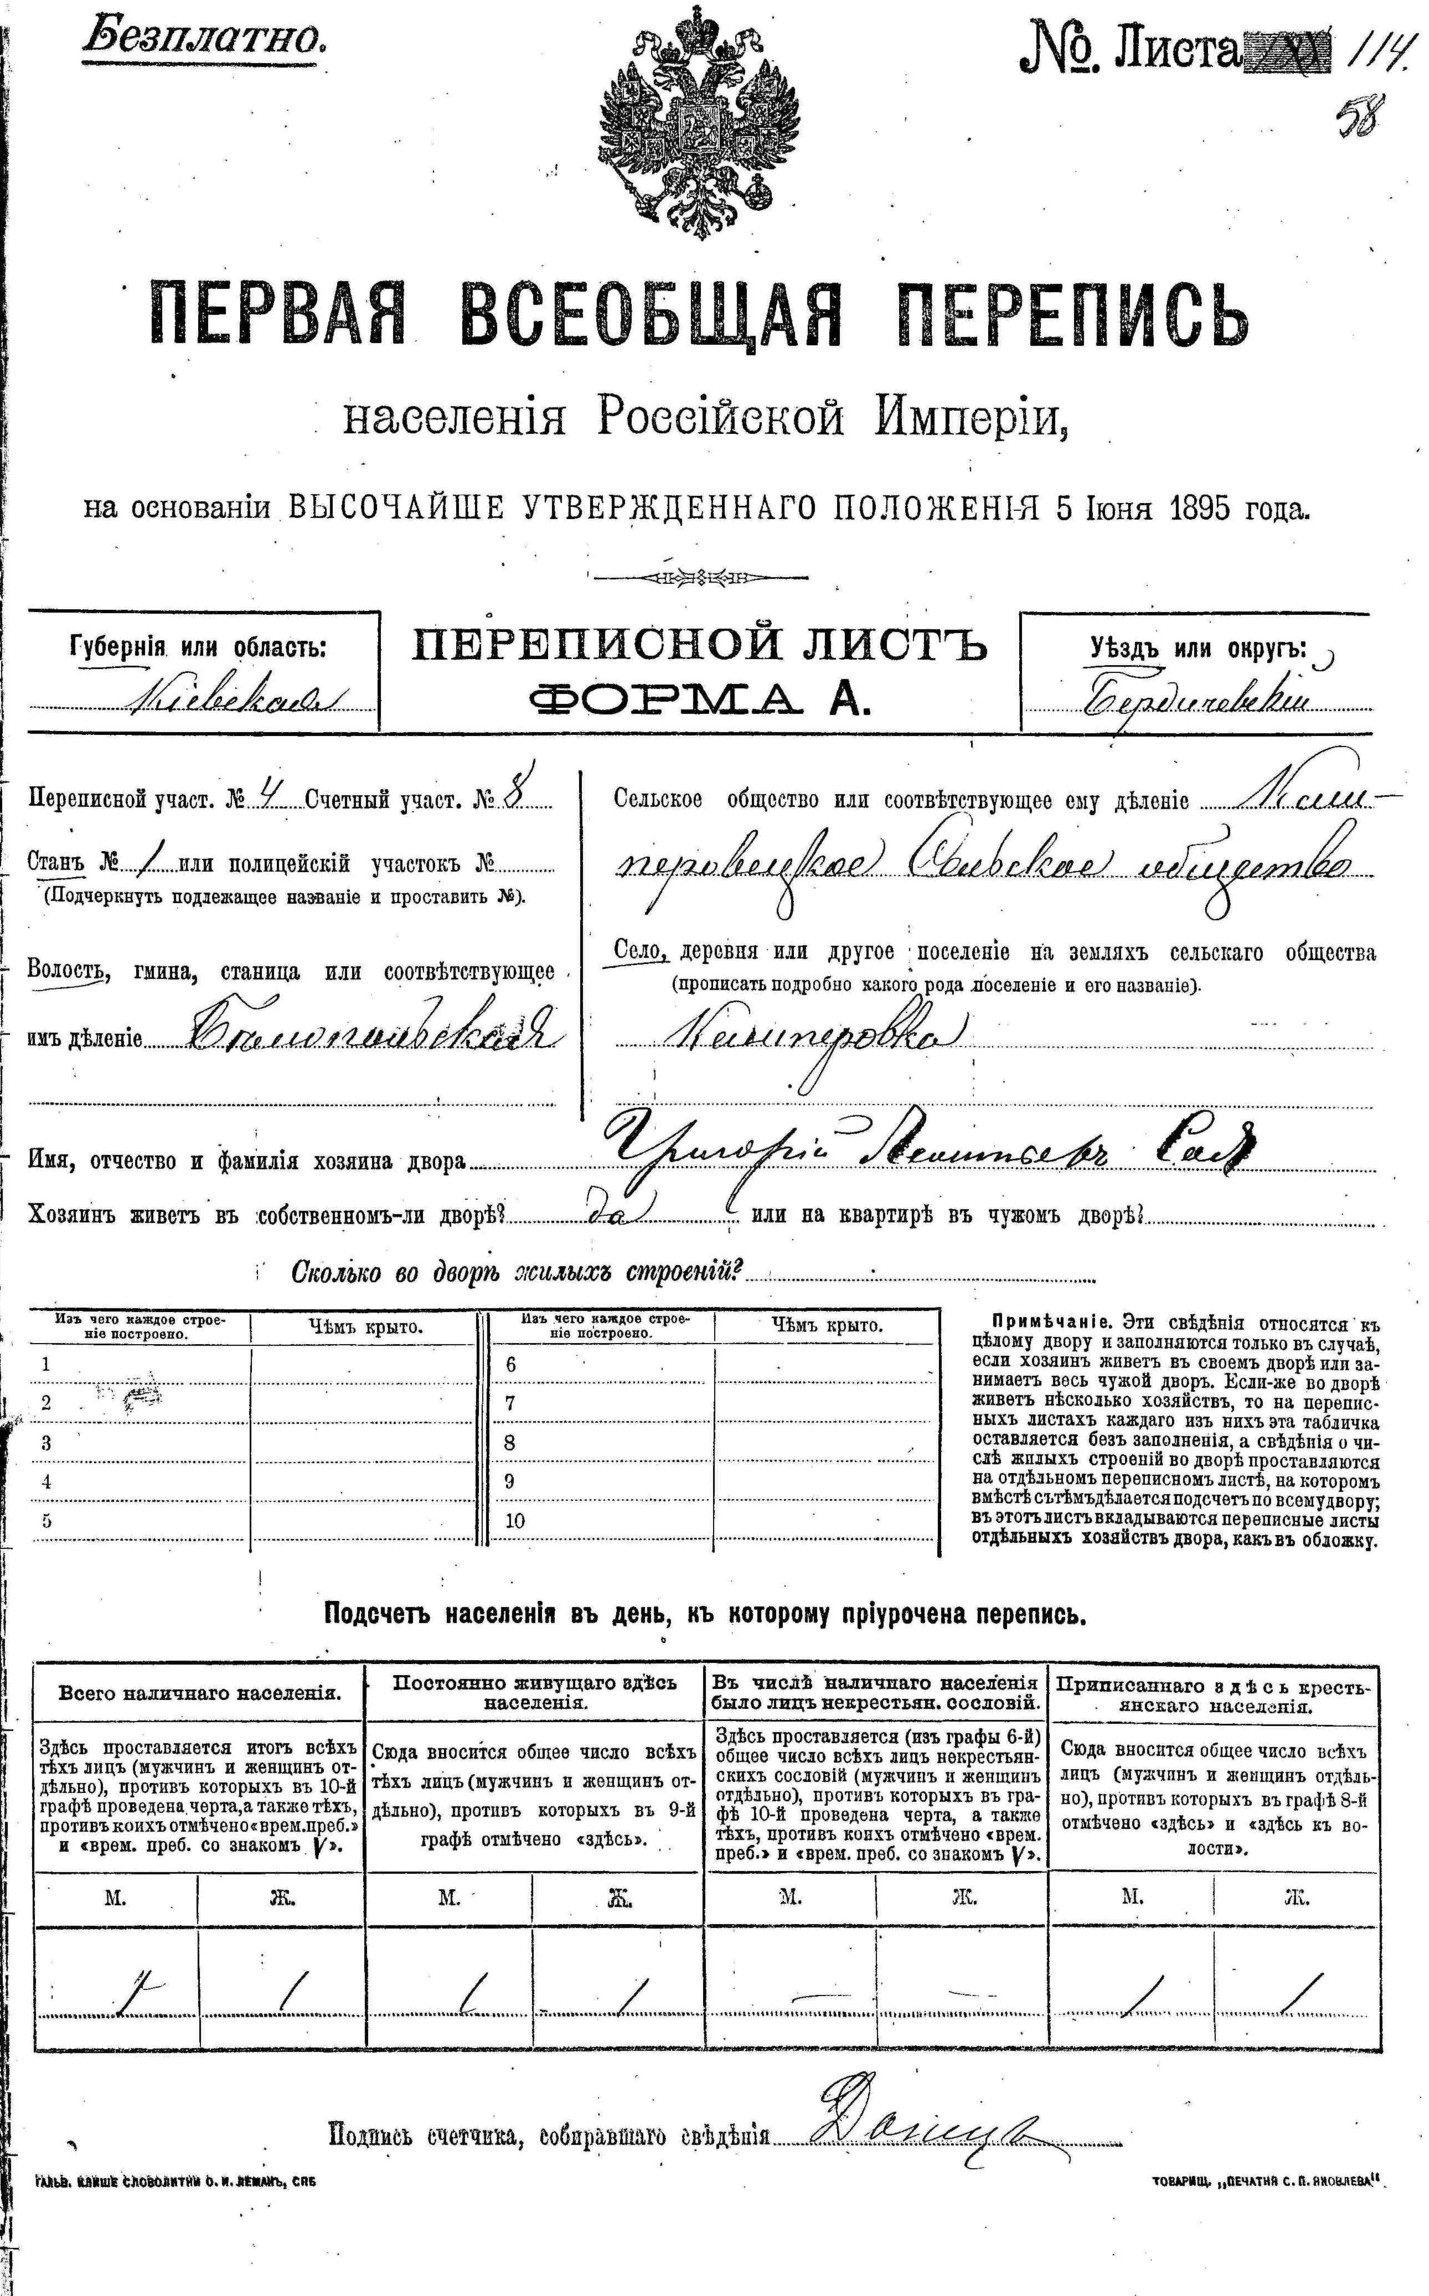 Безплатно.
№. Листа 114.
58
ПЕРВАЯ ВСЕОБЩАЯ ПЕРЕПИСЬ
населенія Россійской Имперіи,
на основаніи ВЫСОЧАЙШЕ УТВЕРЖДЕННАГО ПОЛОЖЕНІЯ 5 Іюня 1895 года.
Губернія или область:
Кіевская
ПЕРЕПИСНОЙ ЛИСТЪ
ФОРМА А.
Уѣздъ или округъ:
Бердичевскій
Переписной участ. № 4 Счетный участ. № 8
Станъ № 1 или полицейскій участокъ №
(Подчеркнуть подлежащее названіе и проставить №).
Волость, гмина, станица или соотвѣтствующее
имъ дѣленіе Бѣлопольская
Сельское общество или соотвѣтствующее ему дѣленіе Каш-
перовецкое Сельское общество
Село, деревня или другое поселеніе на земляхъ сельскаго общества
(прописать подробно какого рода поселеніе и его названіе).
Кашперовка
Имя, отчество и фамилія хозяина двора Григорій Леонтьевъ
Хозяинъ живетъ въ собственномъ-ли дворѣ? да или на квартирѣ въ чужомъ дворѣ?
Сколько во дворѣ жилыхъ строеній?
Изъ чего каждое строе-
ніе построено.
Чѣмъ крыто.
1
2
3
4
5
Изъ чего каждое строе-
ніе построено.
Чѣмъ крыто.
6
7
8
9
10
Примѣчаніе. Эти свѣдѣнія относятся къ
цѣлому двору и заполняются только въ случаѣ,
если хозяинъ живетъ въ своемъ дворѣ или за-
нимаетъ весь чужой дворъ. Если-же во дворѣ
живетъ нѣсколько хозяйствъ, то на перепис-
ныхъ листахъ каждаго изъ нихъ эта табличка
оставляется безъ заполненія, а свѣдѣнія о чи-
слѣ жилыхъ строеній во дворѣ проставляются
на отдѣльномъ переписномъ листѣ, на которомъ
вмѣстѣ съ тѣмъ дѣлается подсчетъ по всему двору;
въ этотъ листъ вкладываются переписные листы
отдѣльныхъ хозяйствъ двора, какъ въ обложку.
Подсчетъ населенія въ день, къ которому пріурочена перепись.
Всего наличнаго населенія.
Здѣсь проставляется итогъ всѣхъ
тѣхъ лицъ (мужчинъ и женщинъ от-
дѣльно), противъ которыхъ въ 10-й
графѣ проведена черта, а также тѣхъ,
противъ коихъ отмѣчено «врем. преб.»
и «врем. преб. со знакомъ V».
М. Ж.
1
Постоянно живущаго здѣсь
населенія.
Сюда вносится общее число всѣхъ
тѣхъ лицъ (мужчинъ и женщинъ от-
дѣльно), противъ которыхъ въ 9-й
графѣ отмѣчено «здѣсь».
М. Ж.
1 1
Въ числѣ наличнаго населенія
было лицъ некрестьян. сословій.
Здѣсь проставляется (изъ графы 6-й)
общее число всѣхъ лицъ некрестьян-
скихъ сословій (мужчинъ и женщинъ
отдѣльно), противъ которыхъ въ гра-
фѣ 10-й проведена черта, а также
тѣхъ, противъ коихъ отмѣчено «врем.
преб.» и «врем. преб. со знакомъ V».
М. Ж.
— —
Приписаннаго здѣсь кресть-
янскаго населенія.
Сюда вносится общее число всѣхъ
лицъ (мужчинъ и женщинъ отдѣль-
но), противъ которыхъ въ графѣ 8-й
отмѣчено «здѣсь» и «здѣсь къ во-
лости».
М. Ж.
1 1
Подпись счетчика, собиравшаго свѣдѣнія
ГАЛЬВ. КЛИШЕ СЛОВОЛИТНИ О. И. ЛЕМАНЪ, СПБ
ТОВАРИЩ. „ПЕЧАТНЯ С. П. ЯКОВЛЕВА“.